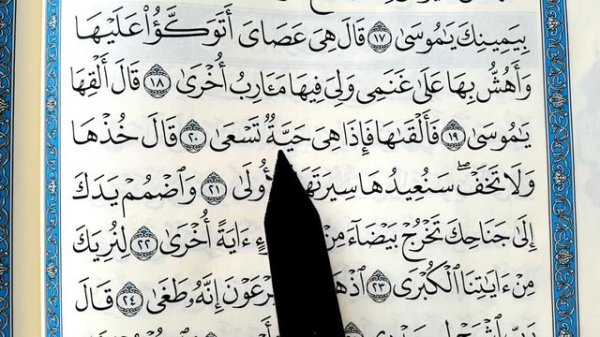 بِيَمِينِكَ يَـٰمُوسَىٰ ١٧ قَالَ هِىَ عَصَاىَ أَتَوَكَّؤُا۟ عَلَيْهَا
وَأَهُشُّ بِهَا عَلَىٰ غَنَمِى وَلِىَ فِيهَا مَـَٔارِبُ أُخْرَىٰ ١٨ قَالَ أَلْقِهَا
يَـٰمُوسَىٰ ١٩ فَأَلْقَىٰهَا فَإِذَا هِىَ حَيَّةٌ تَسْعَىٰ ٢٠ قَالَ خُذْهَا
وَلَا تَخَفْ ۖ سَنُعِيدُهَا سِيرَتَهَا ٱلْأُولَىٰ ٢١ وَٱضْمُمْ يَدَكَ
إِلَىٰ جَنَاحِكَ تَخْرُجْ بَيْضَآءَ مِنْ ءَايَةً أُخْرَىٰ ٢٢ لِنُرِيَكَ
مِنْ ءَايَـٰتِنَا ٱلْكُبْرَى ٢٣ فِرْعَوْنَ إِنَّهُۥ طَغَىٰ ٢٤ قَالَ